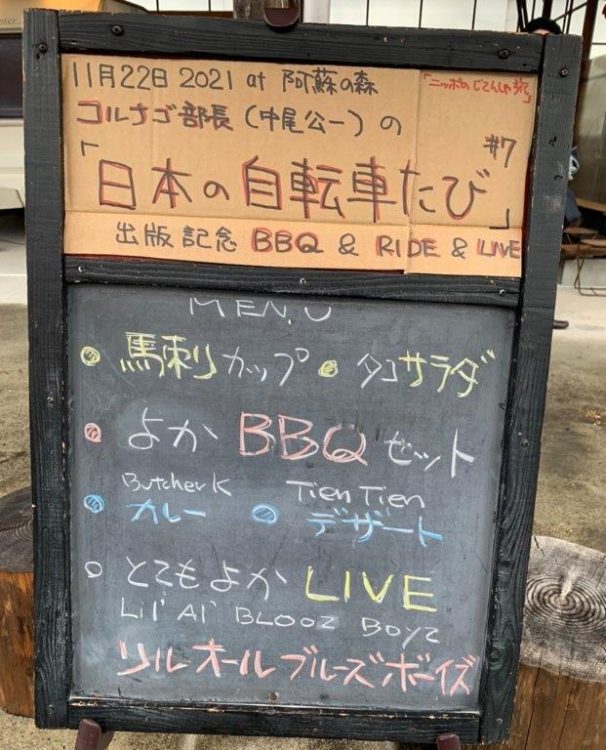 11月22日 2021 at 阿蘇の森
「ニッポンのじてんしゃ旅」
コルナゴ部長（中尾公一）の
#7
「日本の自転車たび」
出版記念 BBQ & RIDE & LIVE
MENU
馬刺カップ ● タコサラダ
よか BBQ セット
Butcher K Tien Tien
カレー ● デザート
○ とてもよか LIVE
Lil' Al' BLOOZ BOYZ
リル オール ブルーズ ボーイズ